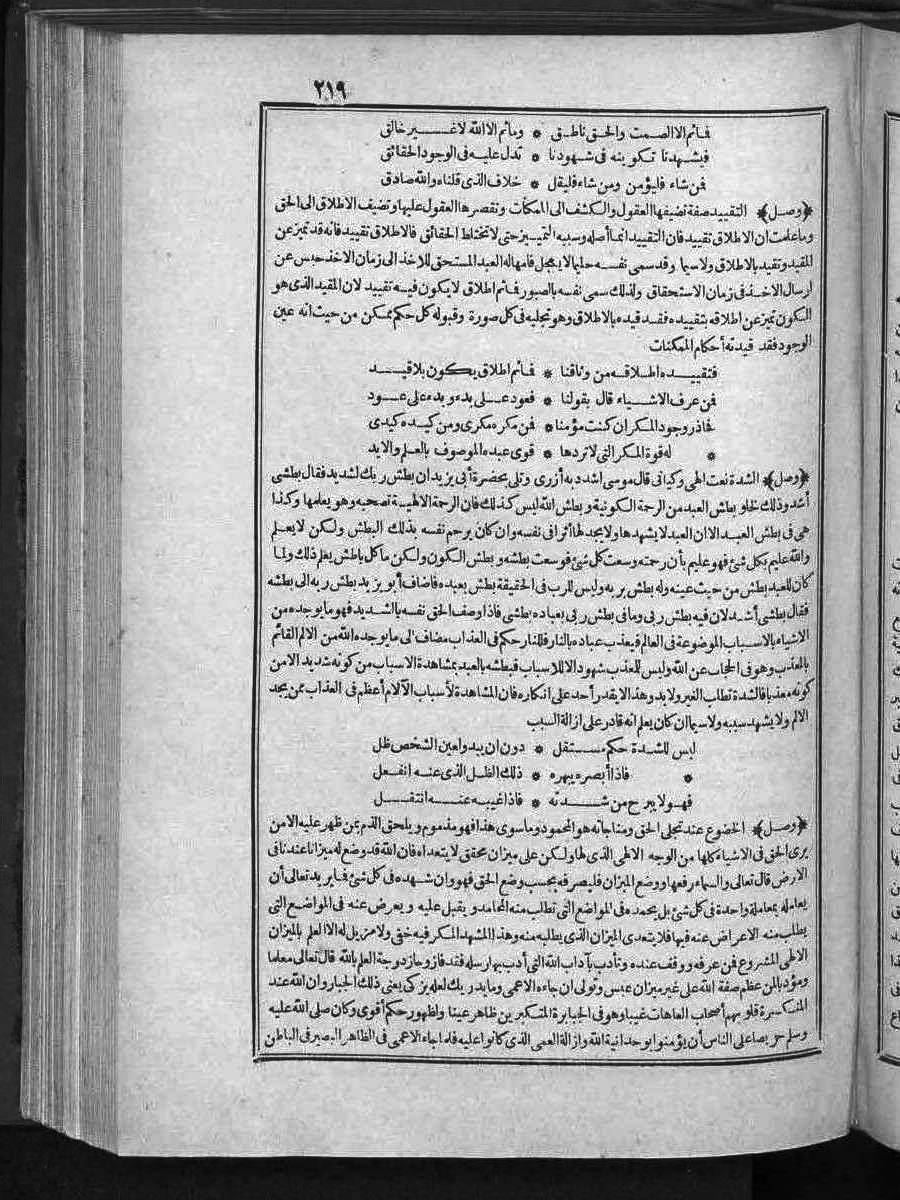 ٢١٩
فماثم الا الصمت والحق ناطق * وماثم الا الله لا غير خالق
فيشهدنا تكوينه فى شهودنا * تدل عليه فى الوجود الحقائق
فمن شاء فليؤمن ومن شاء فليقل * خلاف الذى قلناه والله صادق
﴿وصل﴾ التقييد صفة تضيفها العقول والكشف الى الممكنات وتقصرها العقول عليها وتضيف الاطلاق الى الحق
وما علمت ان الاطلاق تقييد فان التقييد انما أصله وسببه التمييز حتى لا تختلط الحقائق فالاطلاق تقييد فانه قد تميز عن
المقيد وتقيد بالاطلاق ولاسيما وقد سمى نفسه حليما لا يعجل فامهاله العبد المستحق للاخذ الى زمان الاخذ حبس عن
ارسال الاخذ فى زمان الاستحقاق ولذلك سمى نفسه بالصبور فماثم اطلاق لا يكون فيه تقييد لان المقيد الذى هو
الكون تميز عن اطلاقه بتقييده فقد قيده بالاطلاق وهو تجليه فى كل صورة وقبوله كل حكم ممكن من حيث انه عين
الوجود فقد قيدته أحكام الممكنات
فتقييده اطلاقه من وثاقنا * فماثم اطلاق يكون بلاقيد
فمن عرف الاشياء قال بقولنا * فعود على بدء وبدء على عود
فحاذر وجود المكر ان كنت مؤمنا * فمن مكره مكرى ومن كيده كيدى
* له قوة المكر التى لا تردها * قوى عبده الموصوف بالعلم والايد
﴿وصل﴾ الشدة نعت الهى وكيانى قال موسى اشدد به أزرى وتلى بحضرة أبى يزيد ان بطش ربك لشديد فقال بطشى
أشد وذلك لخلو بطش العبد من الرحمة الكونية وبطش الله ليس كذلك فان الرحمة الالهية تصحبه وهو يعلمها وكذا
هى فى بطش العبد الا ان العبد لا يشهدها ولا يجد لها أثرا فى نفسه وان كان يرحم نفسه بذلك البطش ولكن لا يعلم
والله عليم بكل شئ فهو عليم بأن رحمته وسعت كل شئ فوسعت بطشه وبطش الكون ولكن ما كل باطش يعلم ذلك ولما
كان للعبد بطش من حيث عينه وله بطش بربه وليس للرب فى الحقيقة بطش بعبده فاضاف أبو يزيد بطش ربه الى بطشه
فقال بطشى أشد لان فيه بطش ربى ومافى بطش ربى بعباده بطشى فاذا وصف الحق نفسه بالشديد فهو ما يوجده من
الاشياء بالاسباب الموضوعة فى العالم فيعذب عباده بالنار فللنار حكم فى العذاب مضاف الى ما يوجده الله من الالم القائم
بالمعذب وهو فى الحجاب عن الله وليس للمعذب شهود الا للاسباب فبطشه بالعبد بمشاهدة الاسباب من كونه شديد الامن
كونه معذبا فالشدة تطلب الغير ولابد وهذا لا يقدر أحد على انكاره فان المشاهدة لأسباب الآلام أعظم فى العذاب ممن يجد
الالم ولا يشهد سببه ولاسيما ان كان يعلم انه قادر على ازالة السبب
ليس للشدة حكم مستقل * دون ان يبدو لعين الشخص ظل
* فاذا أبصره يبهره * ذلك الظل الذى عنه انفعل
فهو لا يبرح من شدته * فاذا غيبه عنه انتقل
﴿وصل﴾ الخضوع عند تجلى الحق ومناجاته هو المحمود وما سوى هذا فهو مذموم ويلحق الذم بمن ظهر عليه الامن
يرى الحق فى الاشياء كلها من الوجه الالهى الذى لها ولكن على ميزان محقق لا يتعداه فان الله قد وضع له ميزانا عندنا فى
الارض قال تعالى والسماء رفعها ووضع الميزان فليصرفه بحسب وضع الحق فهو وان شهده فى كل شئ فما يريد تعالى أن
يعامله بمعاملة واحدة فى كل شئ بل يحمده فى المواضع التى تطلب منه المحامد ويقبل عليه ويعرض عنه فى المواضع التى
يطلب منه الاعراض عنه فيها فلا يتعدى الميزان الذى يطلبه منه وهذا المشهد المكر فيه خفى ولا مزيل له الا العلم بالميزان
الالهى المشروع فمن عرفه ووقف عنده وتأدب بآداب الله التى أدب بها رسله فقد فاز وحاز درجة العلم بالله قال تعالى معلما
ومؤدبا لمن عظم صفة الله على غير ميزان عبس وتولى ان جاءه الاعمى وما يدريك لعله يزكى يعنى ذلك الجبار وان الله عند
المنكسرة قلوبهم أصحاب العاهات غيبا وهو فى الجبابرة المتكبرين ظاهر عينا ولظهور حكم أقوى وكان صلى الله عليه
وسلم حريصا على الناس أن يؤمنوا بوحدانية الله وازالة العمى الذى كانوا عليه فلما جاء الاعمى فى الظاهر البصير فى الباطن